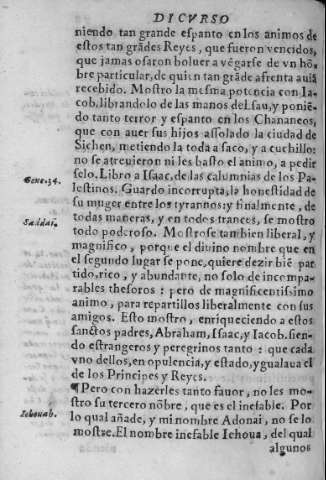 DICVRSO
niendo tan grande espanto en los animos de
estos tan grādes Reyes, que fueron vencidos,
que jamas osaron boluer a vēgarse de vn hō-
bre particular, de quien tan grāde afrenta auiā
recebido. Mostro la mesma potencia con Ia-
cob, librandolo de las manos de Esau, y poniē-
do tanto terror y espanto en los Chananeos,
que con auer sus hijos assolado la ciudad de
Sichen, metiendo la toda a saco, y a cuchillo:
no se atreuieron ni les basto el animo, a pedir
Gene.34.
selo. Libro a Isaac, de las calumnias de los Pa-
lestinos. Guardo incorrupta, la honestidad de
su muger entre los tyrannos: y finalmente, de
todas maneras, y en todos trances, se mostro
Saddai.
todo poderoso. Mostrose tambien liberal, y
magnifico, porque el diuino nombre que en
el segundo lugar se pone, quiere dezir biē par
tido, rico, y abundante, no solo de incompa-
rables thesoros: pero de magnificentissimo
animo, para repartillos liberalmente con sus
amigos. Esto mostro, enriqueciendo a estos
sanctos padres, Abraham, Isaac, y Iacob, sien-
do estrangeros y peregrinos tanto: que cada
vno dellos, en opulencia, y estado, ygualaua cō
los de los Principes y Reyes.
¶Pero con hazerles tanto fauor, no les mo-
stro su tercero nōbre, que es el inefable. Por
Iehouah.
lo qual añade, y mi nombre Adonai, no se lo
mostre. El nombre inefable Iehoua, del qual
algunos